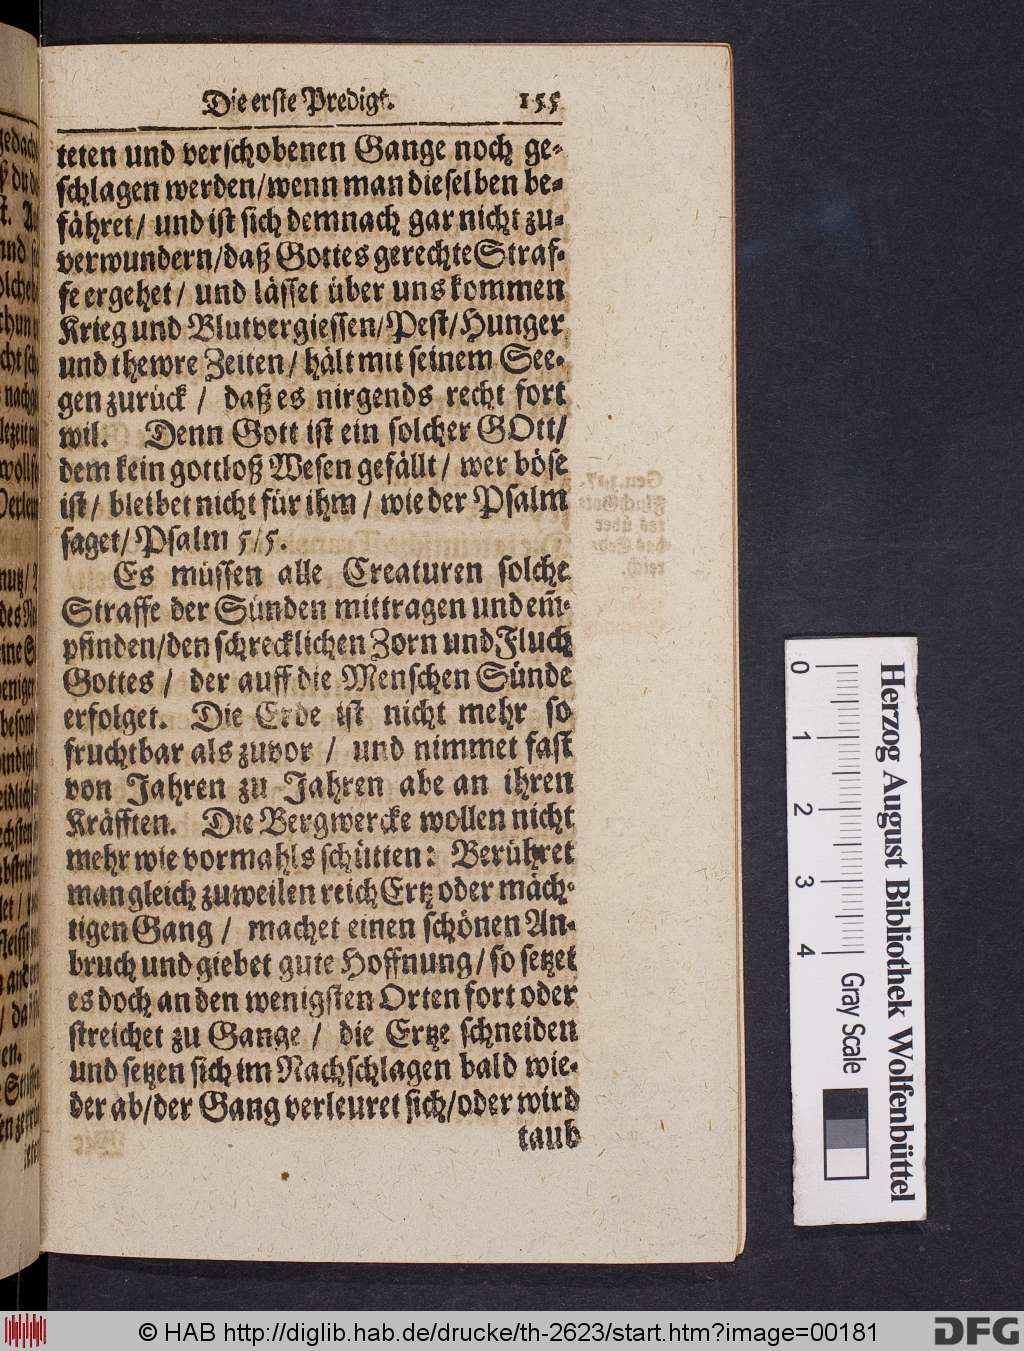 Die erste Predigt. 155
teten und verschobenen Gange noch ge-
schlagen werden/wenn man dieselben be-
fähret/ und ist sich demnach gar nicht zu-
verwundern/daß Gottes gerechte Straf-
fe ergehet/ und lässet über uns kommen
Krieg und Blutvergiessen/Pest/Hunger
und thewre Zeiten/ hält mit seinem See-
gen zurück / daß es nirgends recht fort
wil. Denn Gott ist ein solcher GOtt/
dem kein gottloß Wesen gefällt/ wer böse
ist/ bleibet nicht für ihm/ wie der Psalm
saget/ Psalm 5/5.
Es müssen alle Creaturen solche
Straffe der Sünden mittragen und em̃-
pfinden/den schrecklichen Zorn und Fluch
Gottes / der auff die Menschen Sünde
erfolget. Die Erde ist nicht mehr so
fruchtbar als zuvor / und nimmet fast
von Jahren zu Jahren abe an ihren
Kräfften. Die Bergwercke wollen nicht
mehr wie vormahls schütten: Berühret
man gleich zuweilen reich Ertz oder mäch-
tigen Gang / machet einen schönen An-
bruch und giebet gute Hoffnung/ so setzet
es doch an den wenigsten Orten fort oder
streichet zu Gange / die Ertze schneiden
und setzen sich im Nachschlagen bald wie-
der ab/der Gang verleuret sich/oder wird
taub
Herzog August Bibliothek Wolfenbüttel
0 1 2 3 4 Gray Scale
© HAB http://diglib.hab.de/drucke/th-2623/start.htm?image=00181
DFG